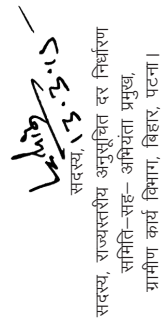 13.3.15
सदस्य,
सदस्य, राज्यस्तरीय अनुसूचित दर निर्धारण
समिति–सह– अभियंता प्रमुख,
ग्रामीण कार्य विभाग, बिहार, पटना।